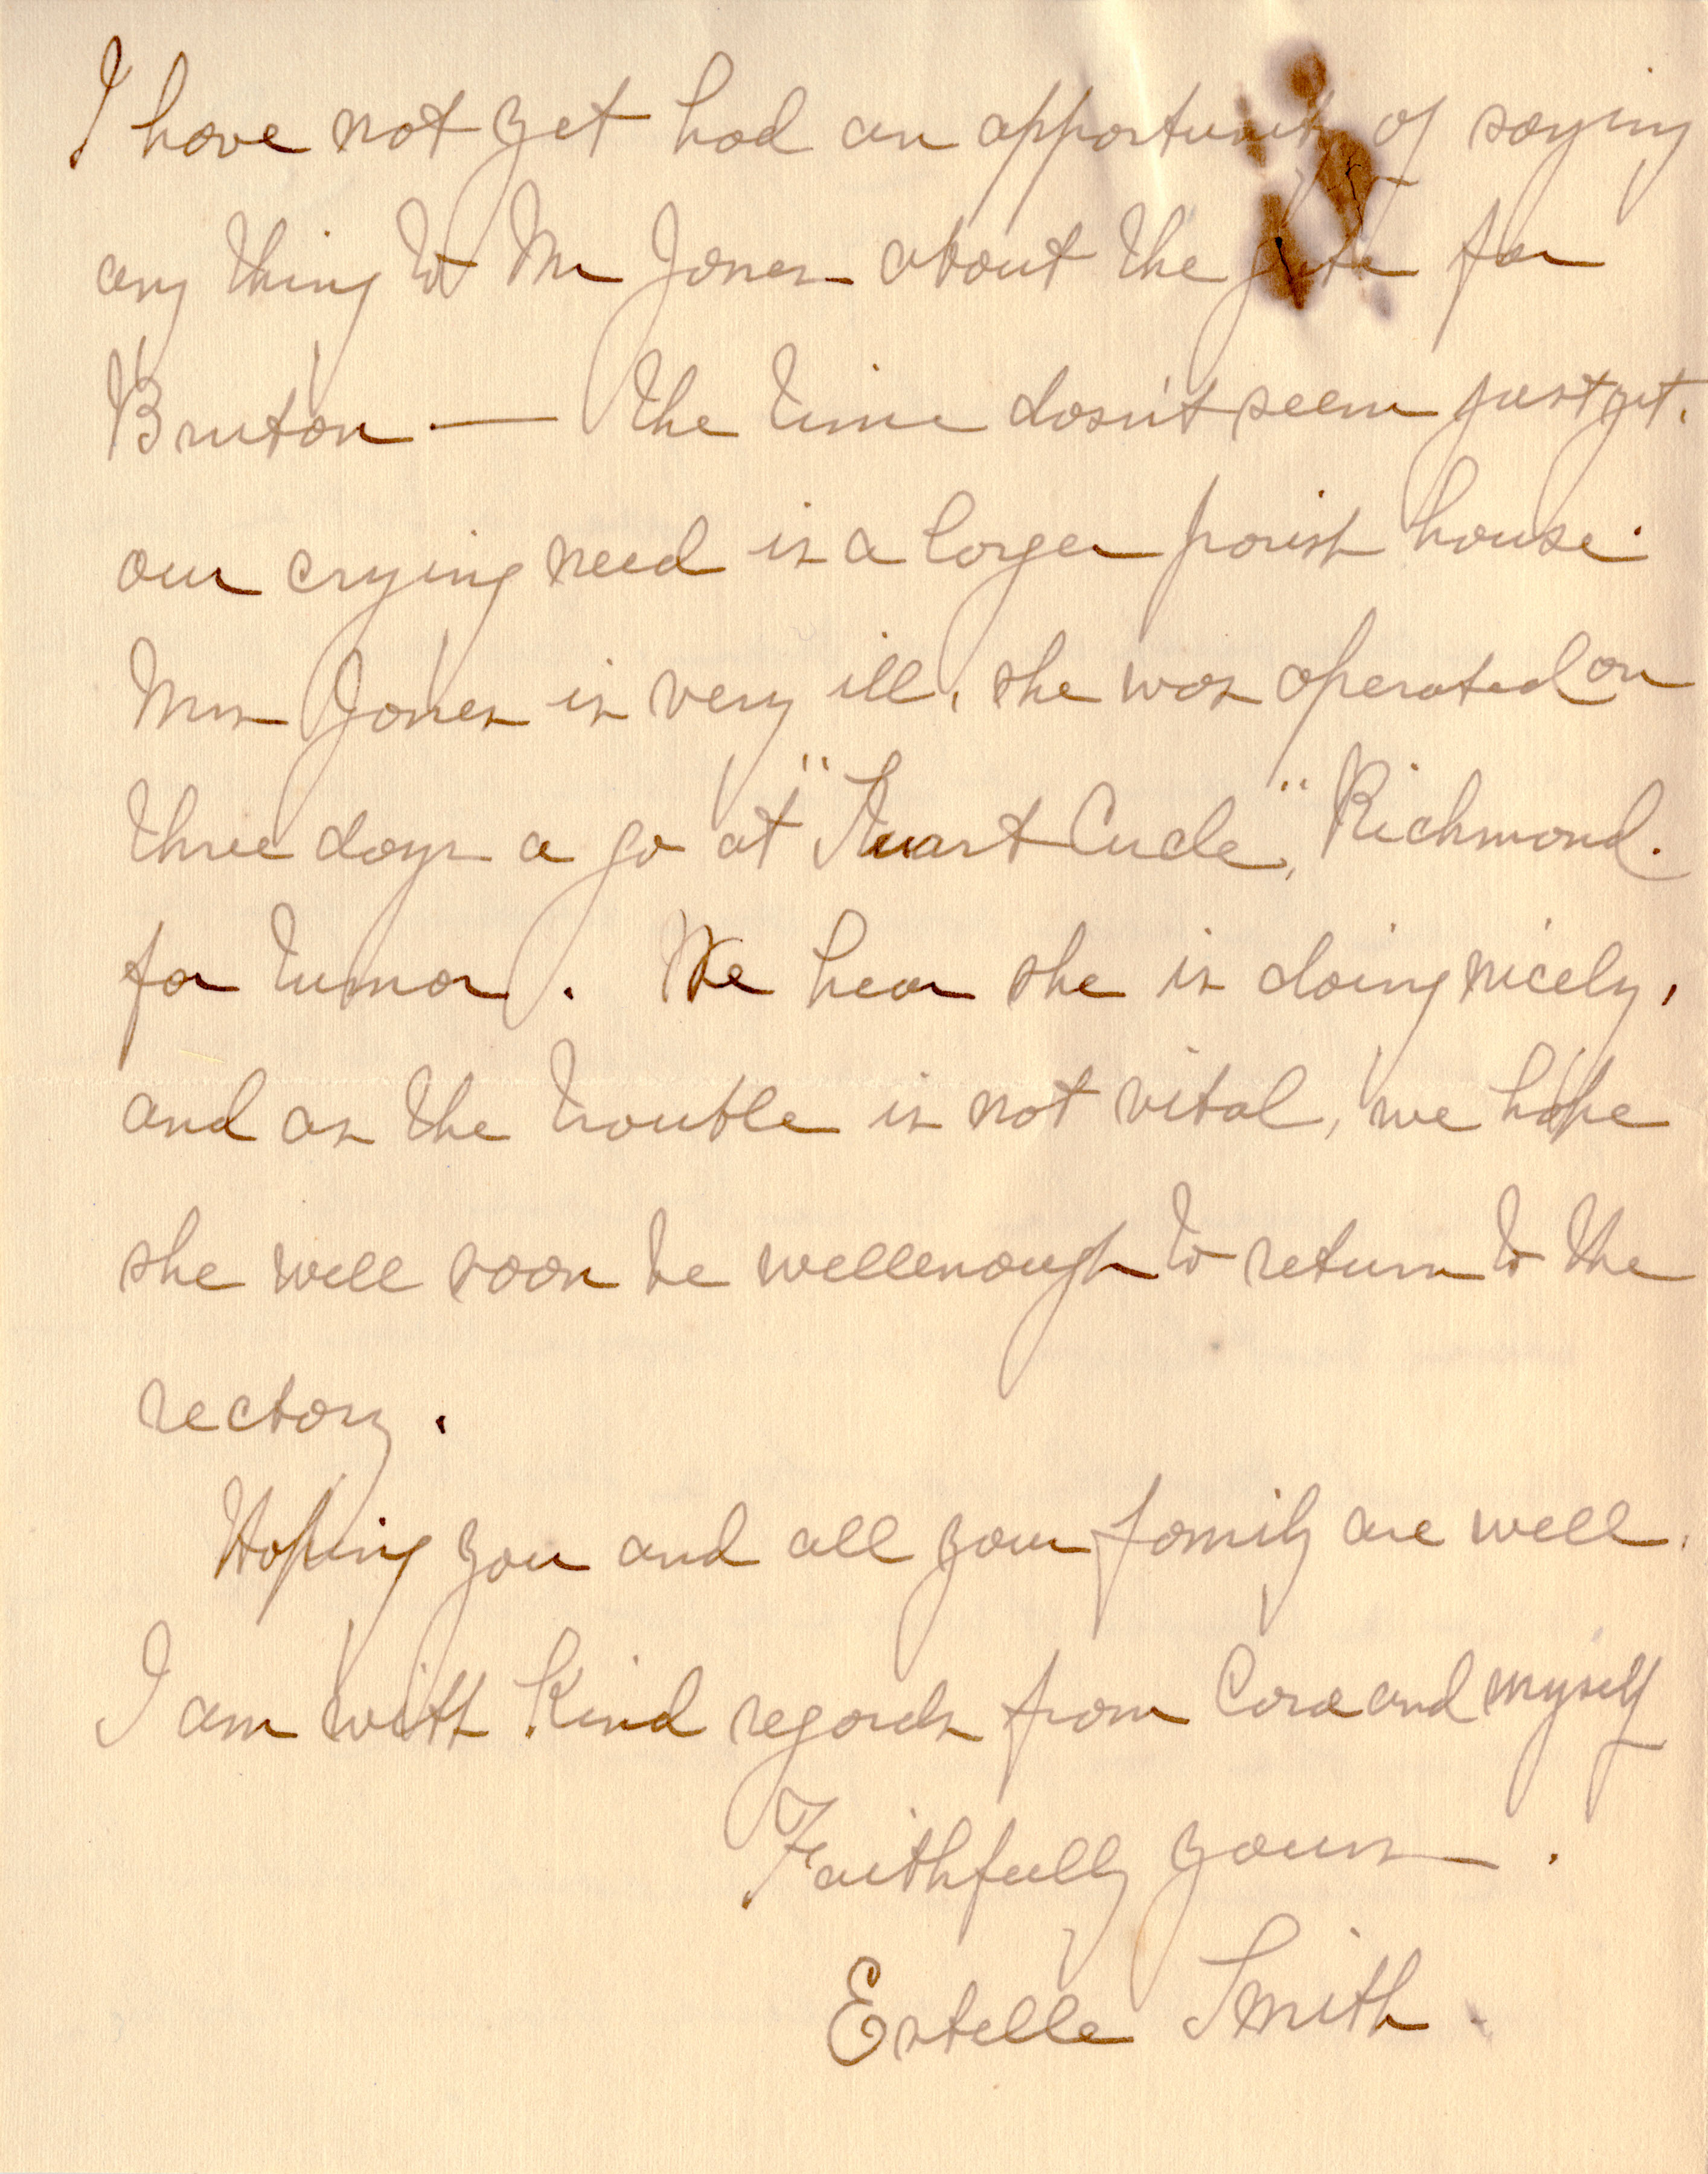 I have not yet had an opportunity of saying
any thing to Mr Jones about the for
Bruton — the time dosn't seem just yet.
our crying need is a larger parish house.
Mrs Jones is very ill, she was operated on
three days a go at "Stuart Circle", Richmond.
for tumor. We hear she is doing nicely,
and as the trouble is not vital, we hope
she well soon be well enough to return to the
rectory.
Hoping you and all your family are well.
I am with kind regards from Cora and myself
Faithfully yours.
Estelle Smith